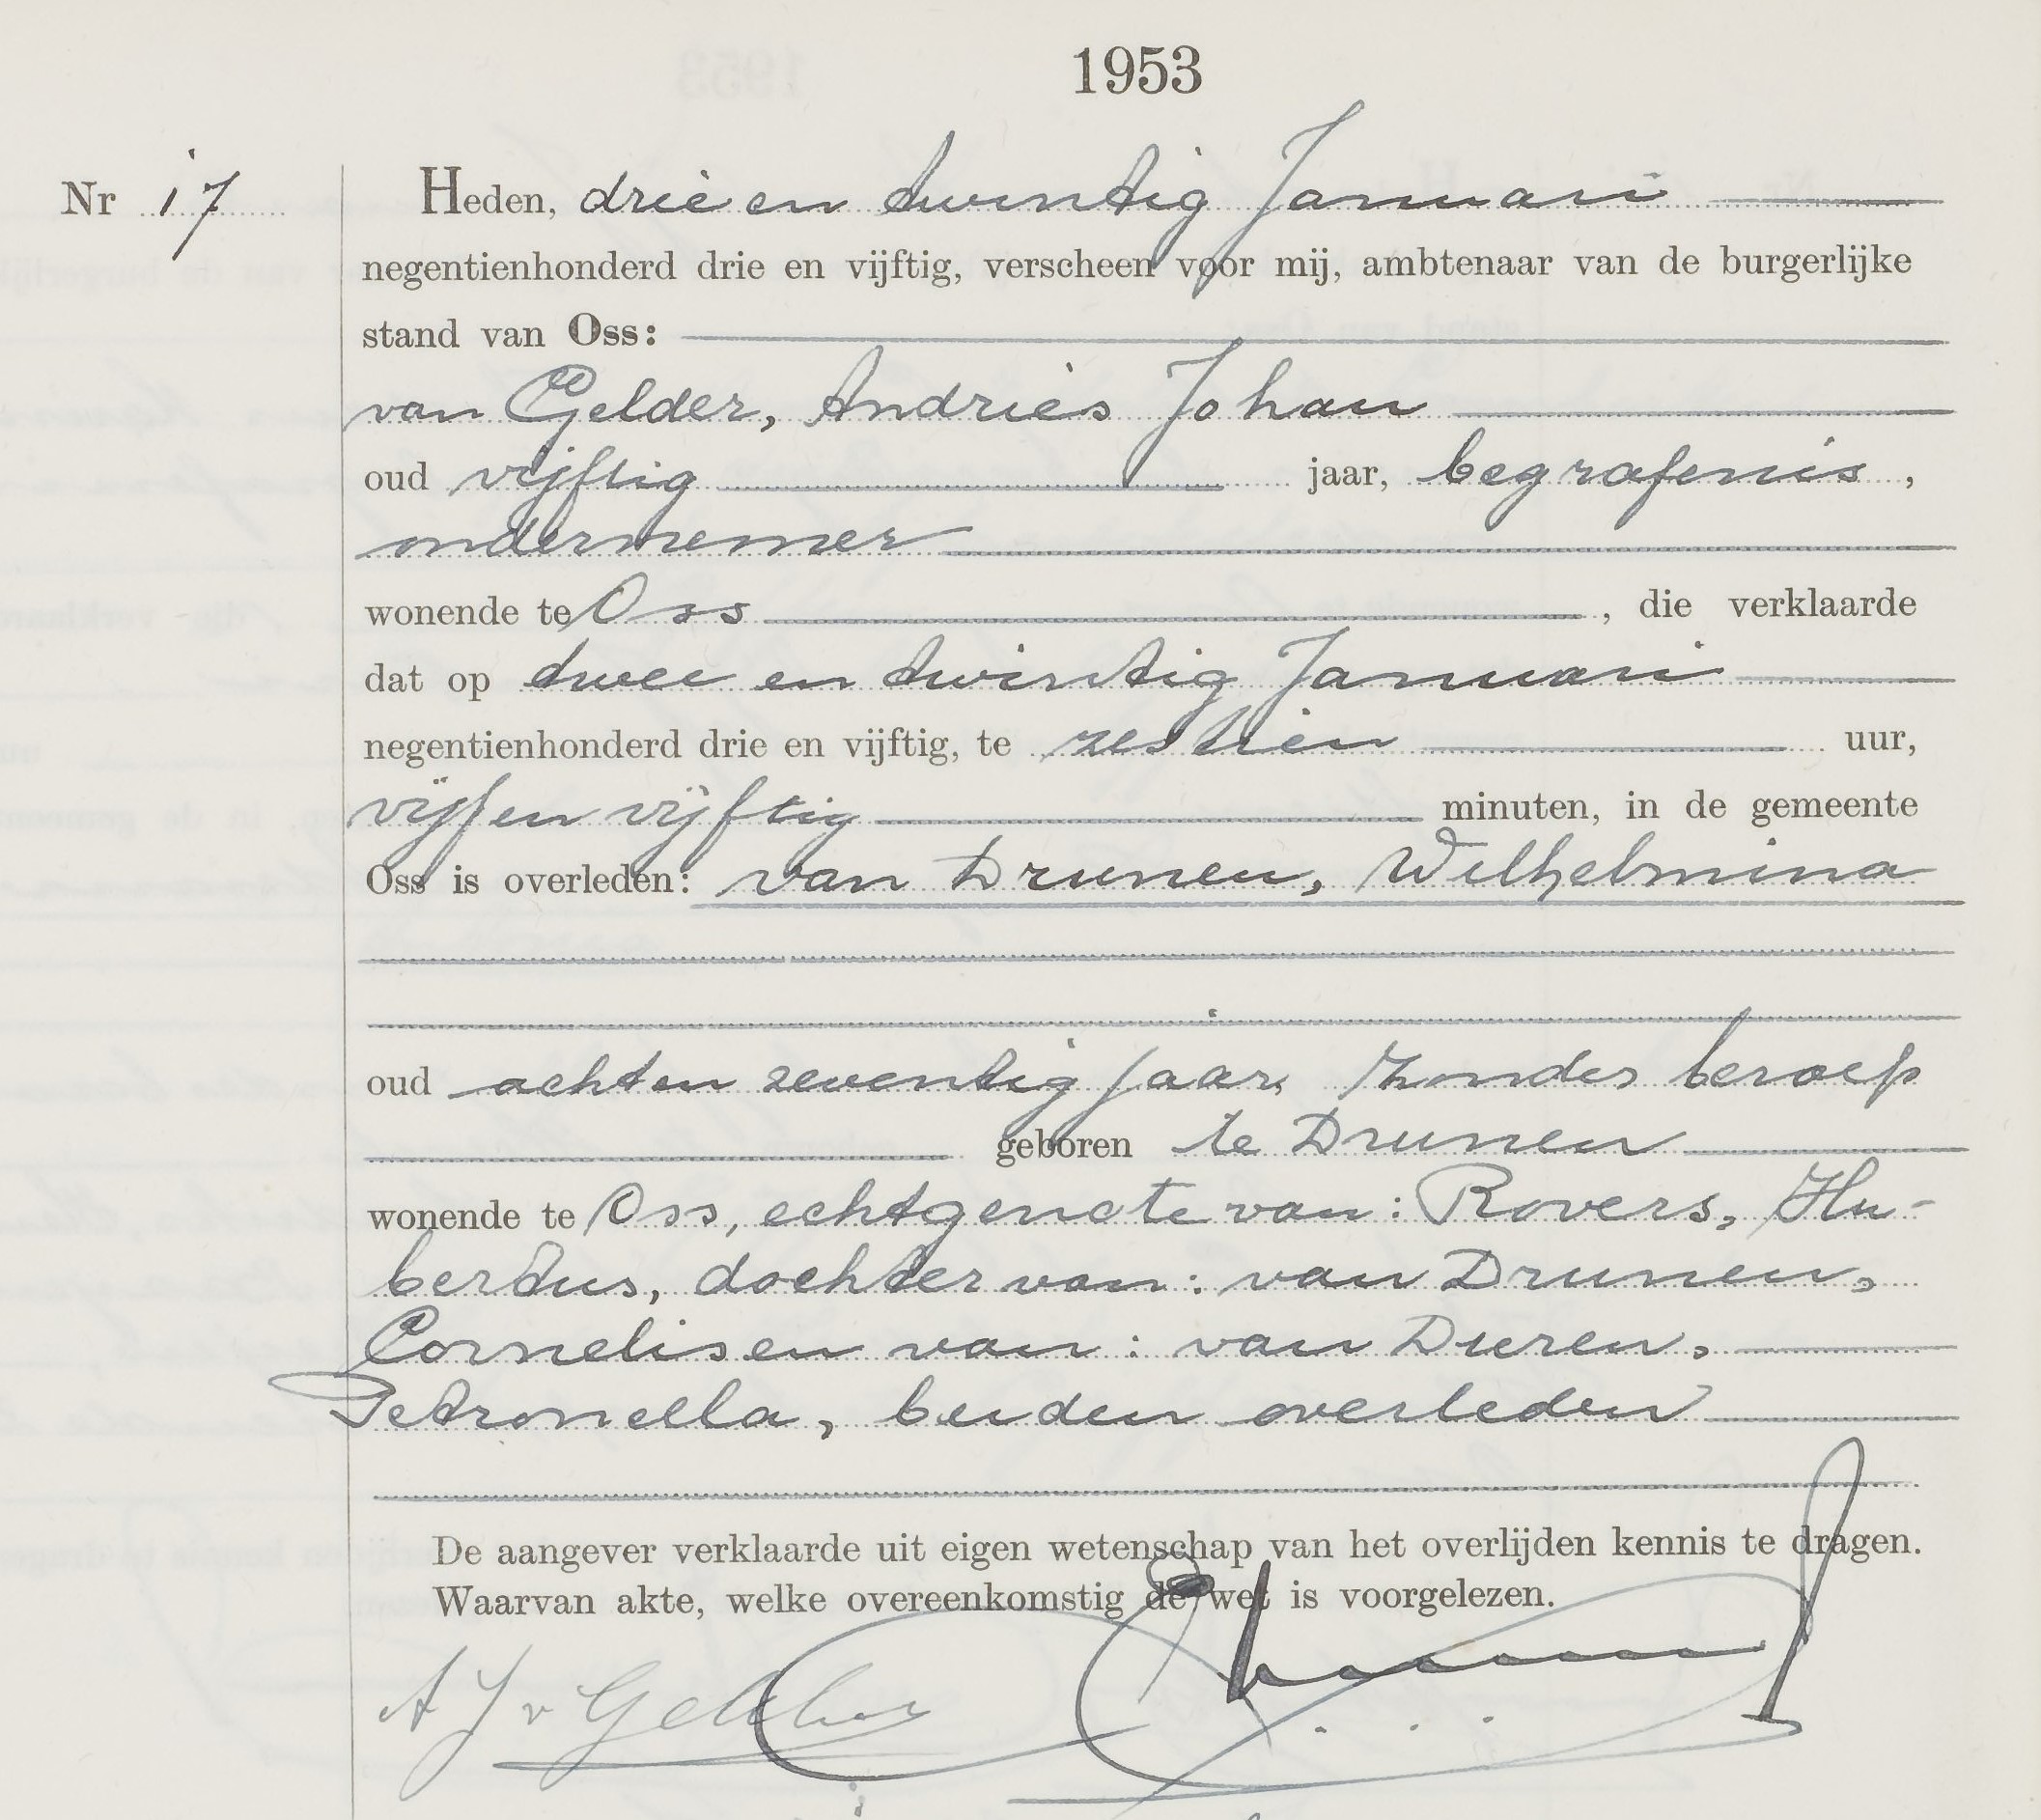 1953
Nr 17 Heden, drie en twintig Januari
negentienhonderd drie en vijftig, verscheen voor mij, ambtenaar van de burgerlijke
stand van Oss:
van Gelder, Andries Johan
oud vijftig jaar, begrafenis,
ondernemer
wonende te Oss, die verklaarde
dat op twee en twintig Januari
negentienhonderd drie en vijftig, te zestien uur,
vijf en vijftig minuten, in de gemeente
Oss is overleden: van Drunen, Wilhelmina
oud acht en zeventig jaar, zonder beroep
geboren te Drunen
wonende te Oss, echtgenote van: Rovers, Hu-
bertus, dochter van: van Drunen,
Cornelis en van: van Dieren,
Petronella, beiden overleden
De aangever verklaarde uit eigen wetenschap van het overlijden kennis te dragen.
Waarvan akte, welke overeenkomstig de wet is voorgelezen.
A J v Gelder